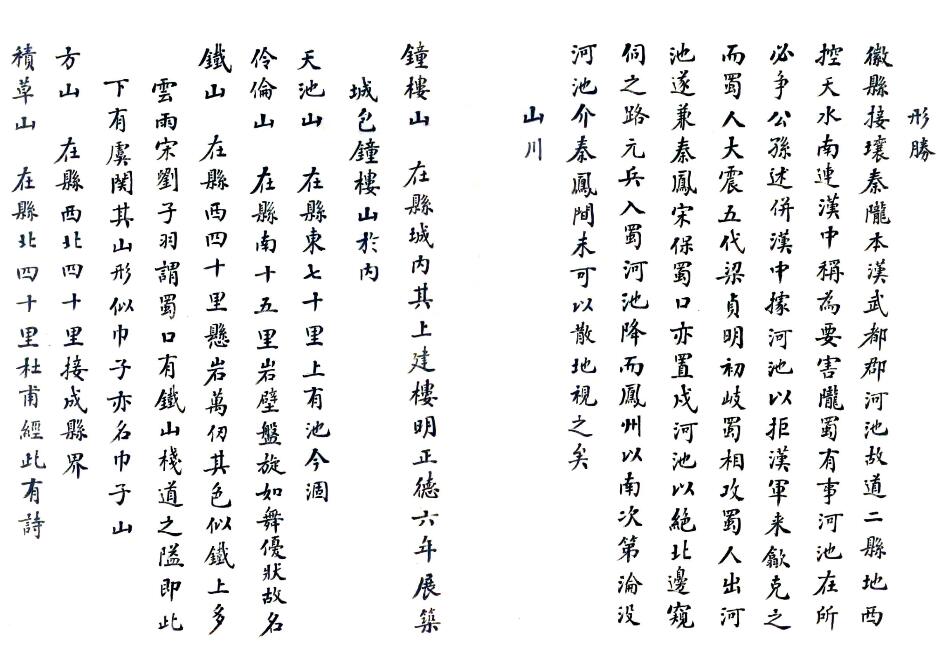 形勝
徽縣接壤秦隴本漢武都郡河池故道二縣地西
控天水南連漢中稱為要害隴蜀有事河池在所
必爭公孫述併漢中據河池以拒漢軍来歙克之
而蜀人大震五代梁貞明初岐蜀相攻蜀人出河
池遂兼秦鳳宋保蜀口亦置戍河池以絕北邊窺
伺之路元兵入蜀河池降而鳳州以南次第淪没
河池介秦鳳間未可以散地視之矣
山川
鐘樓山 在縣城内其上建樓明正德六年展築
城包鐘樓山於内
天池山 在縣東七十里上有池今涸
伶倫山 在縣南十五里岩壁盤旋如舞優狀故名
鐵山 在縣西四十里懸岩萬仞其色似鐵上多
雲雨宋劉子羽謂蜀口有鐵山棧道之隘即此
下有虞関其山形似巾子亦名巾子山
方山 在縣西北四十里接成縣界
積草山 在縣北四十里杜甫經此有詩